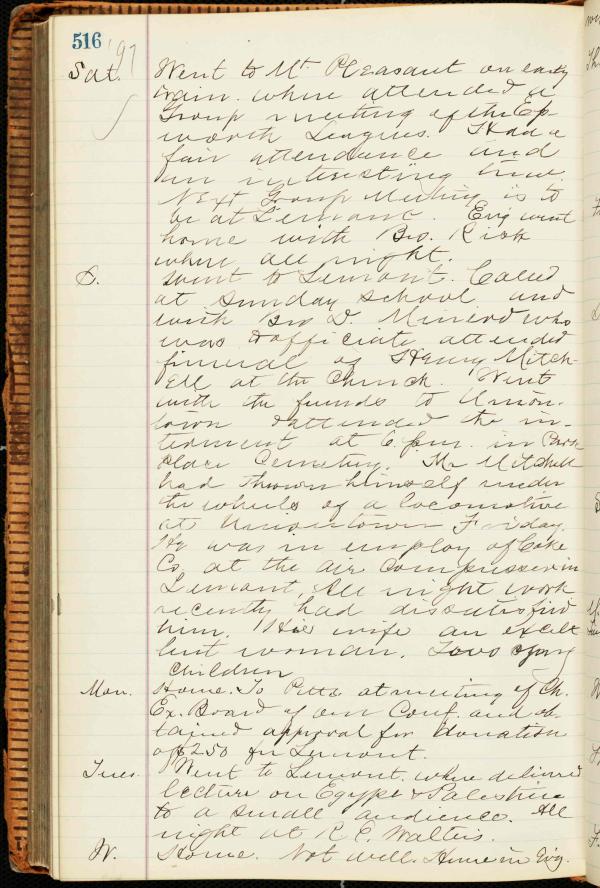 516 '97
Sat. Went to Mt. Pleasant on early
train. where attended a
Group meeting of the Ep-
worth Leagues. Had a
fair attendance and
an interesting time.
Next Group Meeting is to
be at Lemont. Eve'g went
home with Bro. Risk
where all night.
S. Went to Lemont. Called
at Sunday School and
with Bro D. Minerd who
was to officiate attended
funeral of Henry Mitch-
ell at the Church. Went
with the funeral to Union-
town & attended the in-
terment at 6. p.m. in Park
Place Cemetery. Mr Mitchell
had thrown himself under
the wheels of a locomotive
at Uniontown Friday.
He was in employ of Coke
Co. at the air compressor in
Lemont, All night work
recently had dissatisfied
him. His wife an excel-
lent woman. Two
children
Mon. Home. To Pitts. at meeting of Ch.
Ex. Board of our Conf. and ob-
tained approval for donation
of $250 for Lemont.
Tues. Went to Lemont. where delivered
lecture on Egypt & Palestine
to a small audience. All
night at R. C. Walters.
W. Home. Not well. Home in Evg.